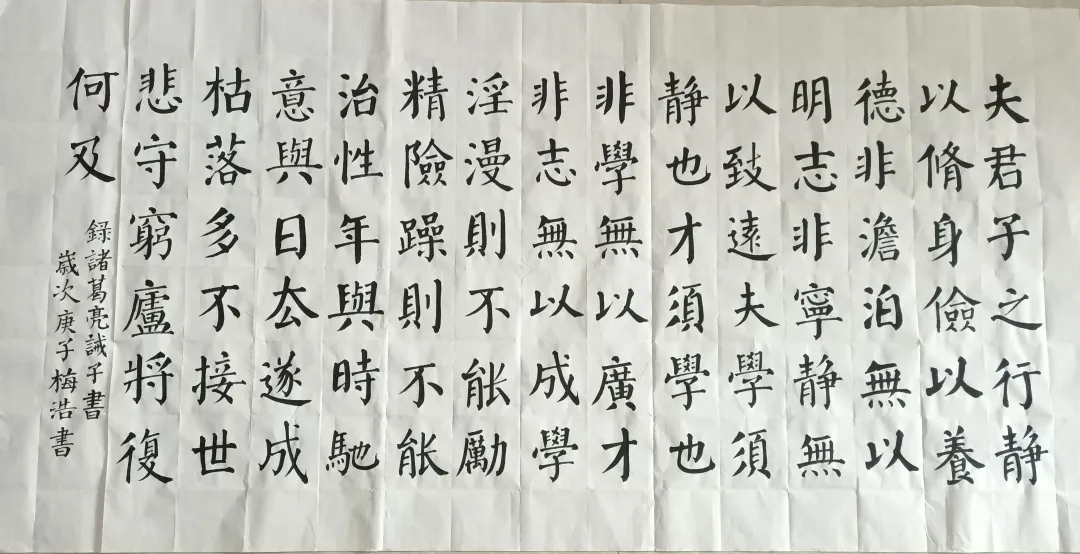 夫君子之行静
以脩身儉以養
德非澹泊無以
明志非寧静無
以致遠夫學須
静也才須學也
非學無以廣才
非志無以成學
淫漫則不能勵
精險躁則不能
治性年與時馳
意與日去遂成
枯落多不接世
悲守窮廬將復
何及
錄諸葛亮誡子書
歲次庚子梅浩書